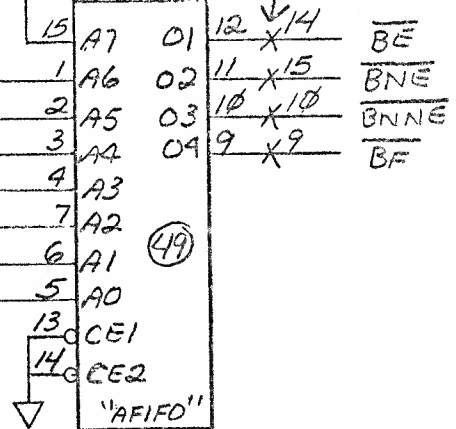 15 A7 O1 12 14 B̅E̅
1 A6 O2 11 15 B̅N̅E̅
2 A5 O3 1∅ 1∅ B̅N̅N̅E̅
3 A4 O4 9 9 B̅F̅
4 A3
7 A2
6 A1 49
5 A0
13 CE1
14 CE2
"AFIFO"